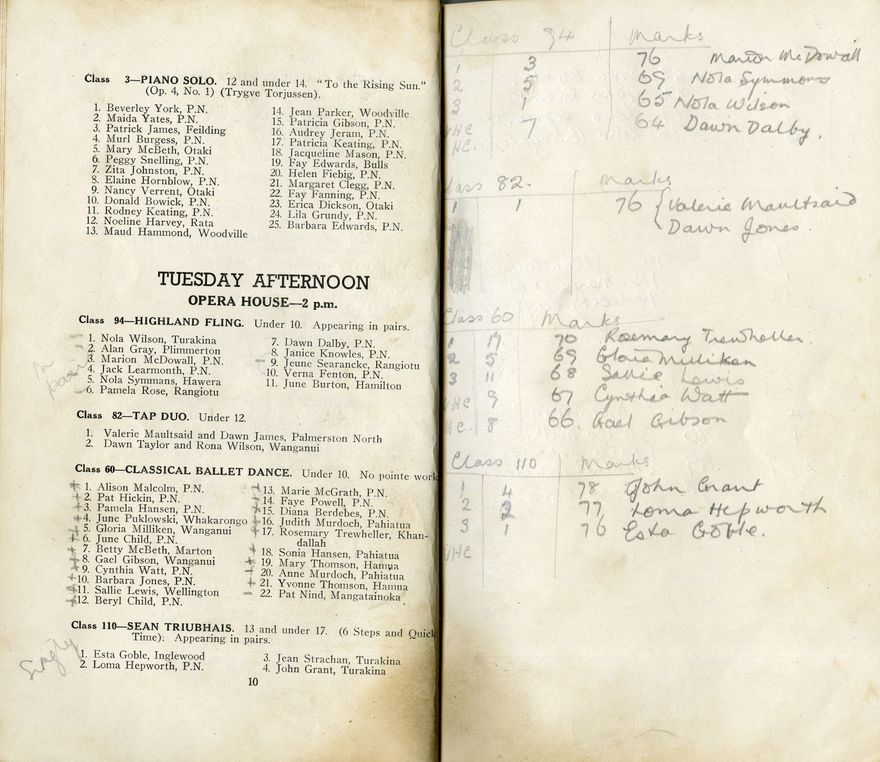 Class 3—PIANO SOLO. 12 and under 14. "To the Rising Sun."
(Op. 4, No. 1) (Trygve Torjussen).
1. Beverley York, P.N.
2. Maida Yates, P.N.
3. Patrick James, Feilding
4. Murl Burgess, P.N.
5. Mary McBeth, Otaki
6. Peggy Snelling, P.N.
7. Zita Johnston, P.N.
8. Elaine Hornblow, P.N.
9. Nancy Verrent, Otaki
10. Donald Bowick, P.N.
11. Rodney Keating, P.N.
12. Noeline Harvey, Rata
13. Maud Hammond, Woodville
14. Jean Parker, Woodville
15. Patricia Gibson, P.N.
16. Audrey Jeram, P.N.
17. Patricia Keating, P.N.
18. Jacqueline Mason, P.N.
19. Fay Edwards, Bulls
20. Helen Fiebig, P.N.
21. Margaret Clegg, P.N.
22. Fay Fanning, P.N.
23. Erica Dickson, Otaki
24. Lila Grundy, P.N.
25. Barbara Edwards, P.N.
TUESDAY AFTERNOON
OPERA HOUSE—2 p.m.
Class 94—HIGHLAND FLING. Under 10. Appearing in pairs.
1. Nola Wilson, Turakina
2. Alan Gray, Plimmerton
3. Marion McDowall, P.N.
4. Jack Learmonth, P.N.
5. Nola Symmans, Hawera
6. Pamela Rose, Rangiotu
7. Dawn Dalby, P.N.
8. Janice Knowles, P.N.
9. Jeune Searancke, Rangiotu
10. Verna Fenton, P.N.
11. June Burton, Hamilton
Class 82—TAP DUO. Under 12.
1. Valerie Maultsaid and Dawn James, Palmerston North
2. Dawn Taylor and Rona Wilson, Wanganui
Class 60—CLASSICAL BALLET DANCE. Under 10. No pointe work
1. Alison Malcolm, P.N.
2. Pat Hickin, P.N.
3. Pamela Hansen, P.N.
4. June Puklowski, Whakarongo
5. Gloria Milliken, Wanganui
6. June Child, P.N.
7. Betty McBeth, Marton
8. Gael Gibson, Wanganui
9. Cynthia Watt, P.N.
10. Barbara Jones, P.N.
11. Sallie Lewis, Wellington
12. Beryl Child, P.N.
13. Marie McGrath, P.N.
14. Faye Powell, P.N.
15. Diana Berdebes, P.N.
16. Judith Murdoch, Pahiatua
17. Rosemary Trewheller, Khan-
dallah
18. Sonia Hansen, Pahiatua
19. Mary Thomson, Hamua
20. Anne Murdoch, Pahiatua
21. Yvonne Thomson, Hamua
22. Pat Nind, Mangatainoka
Class 110—SEAN TRIUBHAIS. 13 and under 17. (6 Steps and Quick
Time): Appearing in pairs.
Singly
1. Esta Goble, Inglewood
2. Loma Hepworth, P.N.
3. Jean Strachan, Turakina
4. John Grant, Turakina
10
Class 94 Marks
1 3 76 Marion McDowall
2 5 69 Nola Symmons
3 1 65 Nola Wilson
VHC 7 64 Dawn Dalby.
HC.
Class 82. Marks
1 1 76 { Valerie Maultsaid
Dawn Jones.
Class 60 Marks
1 17 70 Rosemary Trewheller
2 5 69 Gloria Milliken
3 11 68 Sallie Lewis
VHC 9 67 Cynthia Watt
HC. 8 66. Gael Gibson
Class 110 Marks
1 4 78 John Grant
2 2 77 Loma Hepworth
3 1 76 Esta Goble.
VHC